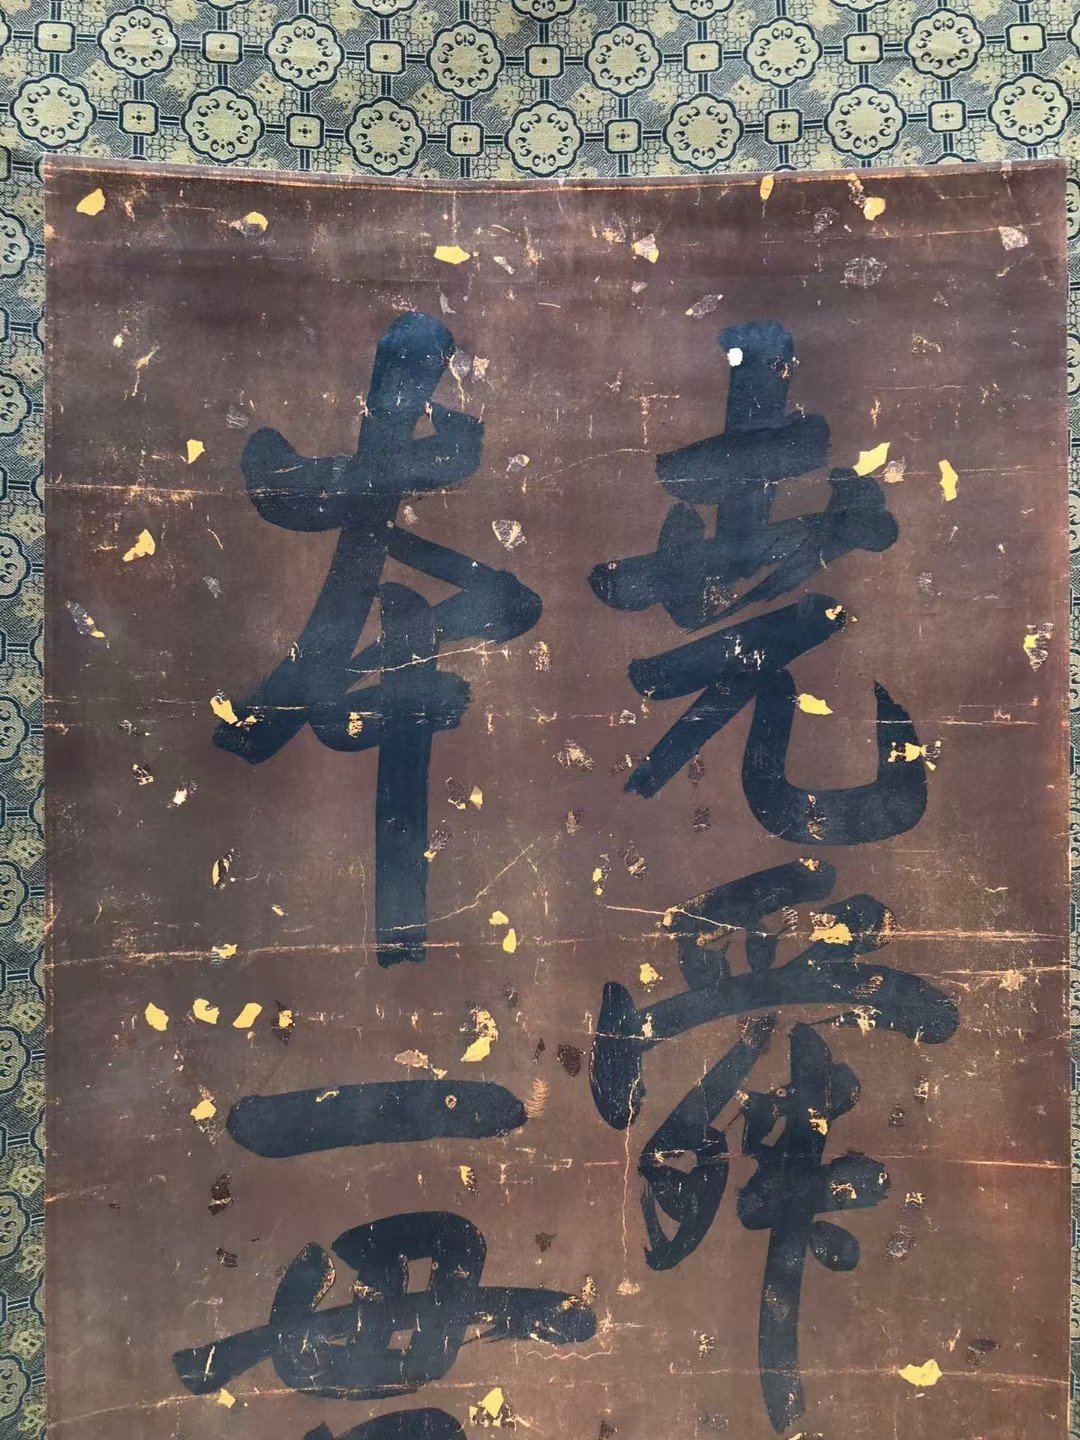 堯舜
本一貫